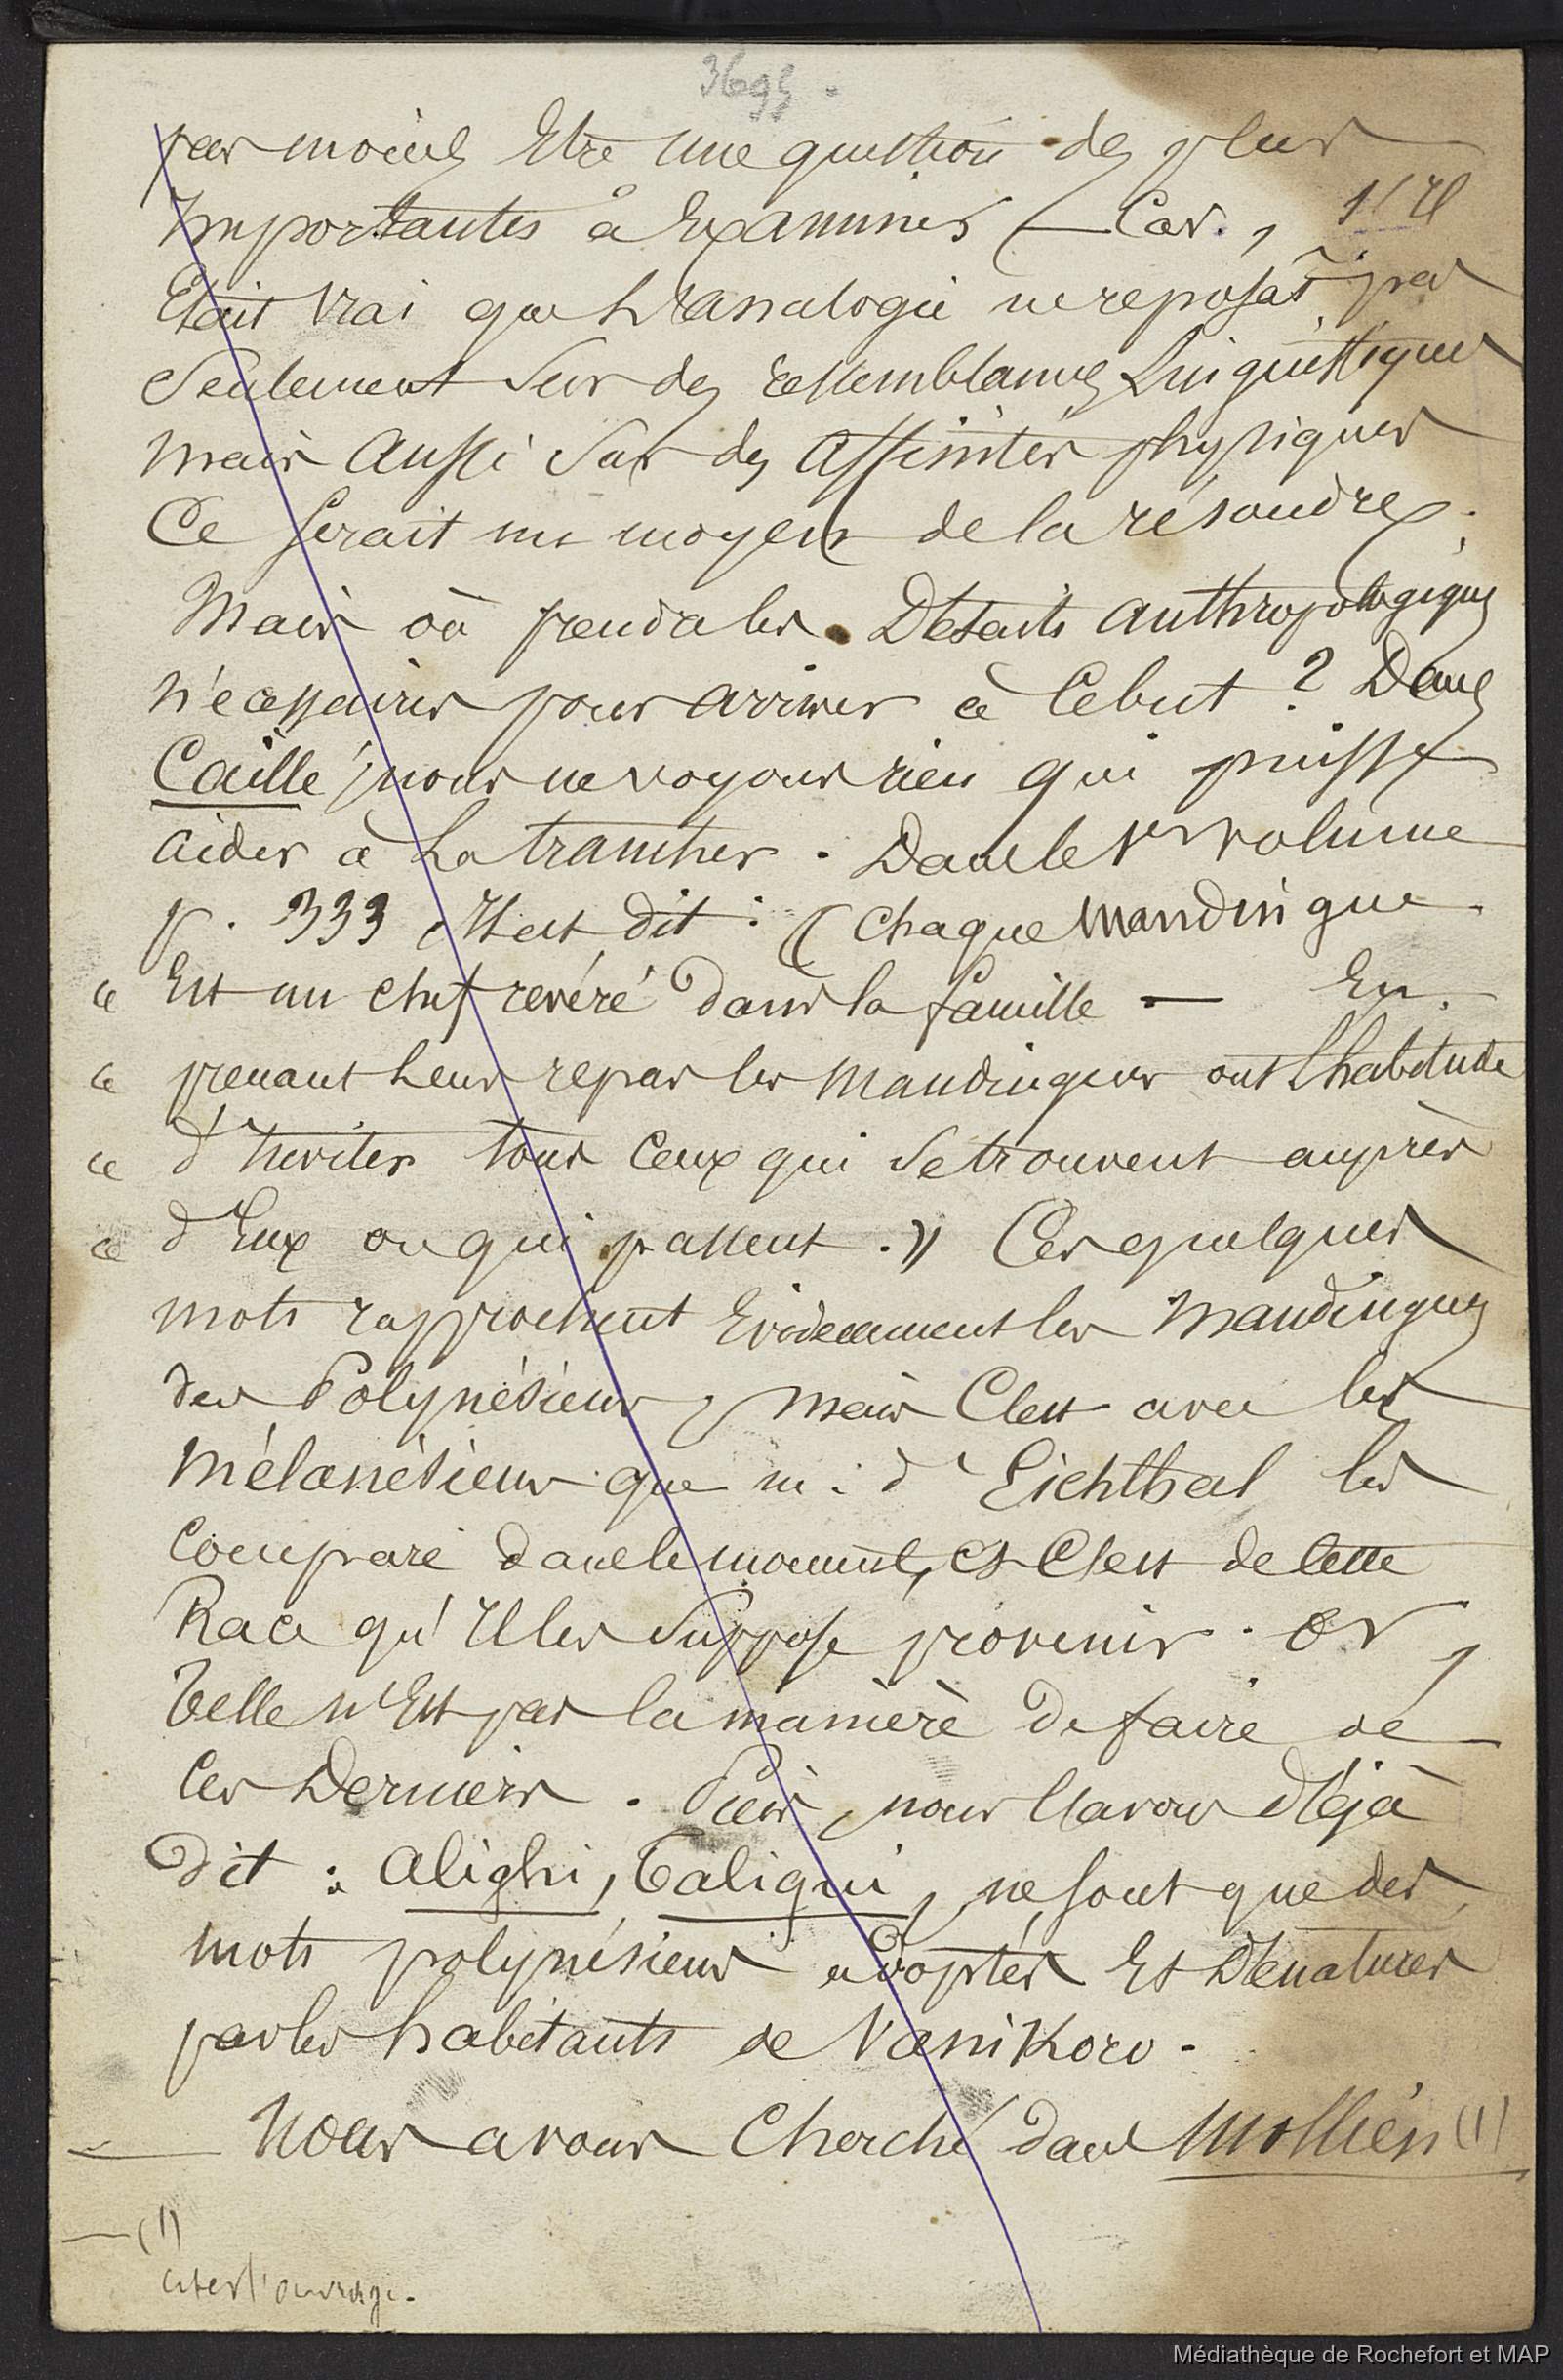 3695.
pas moins Etre une question des plus
Importantes à Examiner — Car, s'Il
Etait vrai que l'analogie ne reposât pas
Seulement Sur des ressemblances Linguistiques
mais Aussi Sur des Affinités physiques
Ce Serait un moyen de la résoudre.
Mais où prendre les Détails anthropologiques
nécessaires pour arriver à Ce but ? Dans
Caillé, nous ne voyons rien qui puisse
aider à La trancher. Dans le 1er volume
p. 333, Il est dit : « Chaque Mandingue
« Est un chef révéré dans la famille — En
« prenant Leurs repas les Mandingues ont l'habitude
« d'Inviter tous Ceux qui Se trouvent auprès
« d'Eux ou qui passent. » Ces quelques
mots rapprochent Evidemment les Mandingues
des Polynésiens, mais C'est avec les
Mélanésiens que m. d'Eichthal les
Compare dans le moment, et C'est de Cette
Race qu'Il les Suppose provenir. Or,
Telle n'Est pas la manière de faire de
Ces Derniers. Puis, nous l'avons Déjà
dit : Alighi, Taligui, ne Sont que des
mots polynésiens adoptés Et Dénaturés
par les habitants de Vanikoro.
— Nous avons Cherché dans Mollien (1)
— (1)
citer l'ouvrage.
Médiathèque de Rochefort et MAP